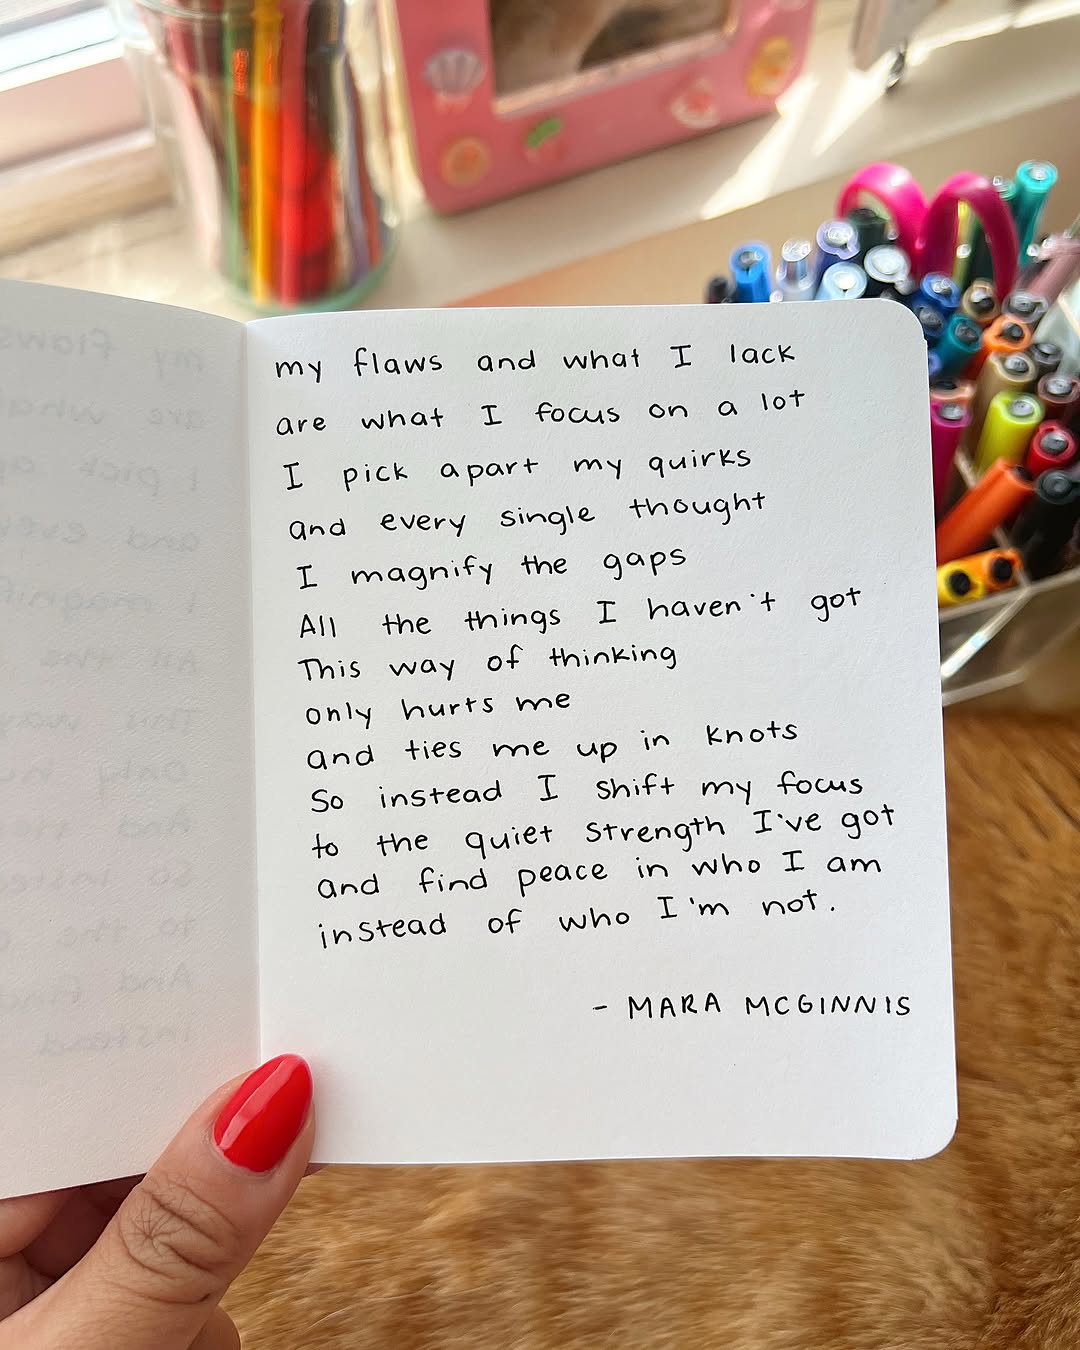 my flaws and what I lack
are what I focus on a lot
I pick apart my quirks
and every single thought
I magnify the gaps
All the things I haven't got
This way of thinking
only hurts me
and ties me up in knots
So instead I shift my focus
to the quiet strength I've got
and find peace in who I am
instead of who I'm not.
- MARA MCGINNIS